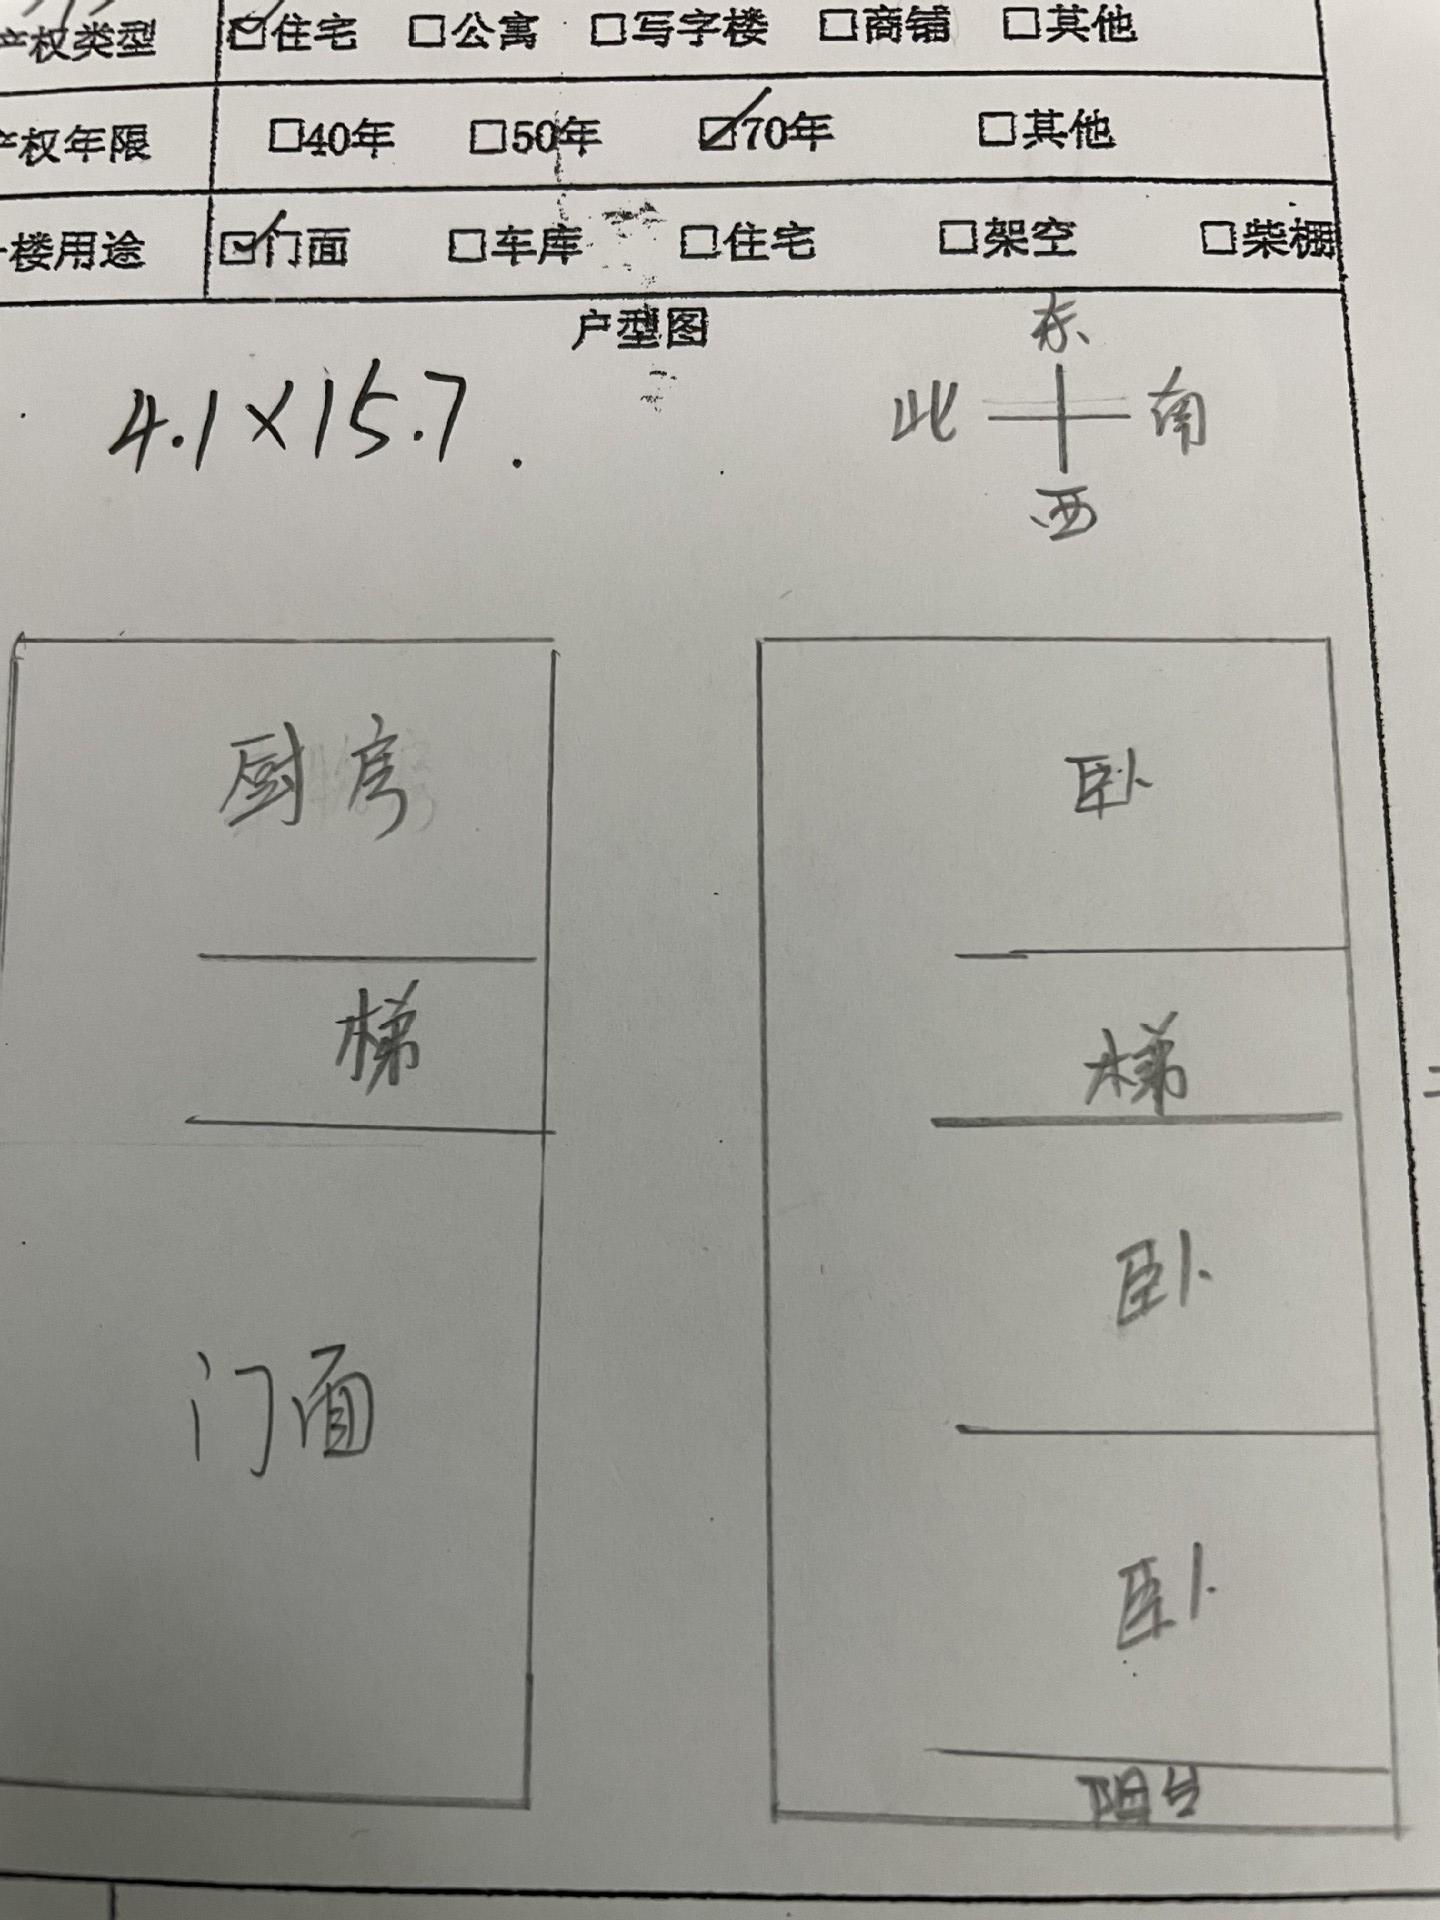 产权类型 ☑住宅 □公寓 □写字楼 □商铺 □其他
产权年限 □40年 □50年 ☑70年 □其他
楼用途 ☑门面 □车库 □住宅 □架空 □柴棚
户型图
东
4.1×15.7.
北 南
西
厨房
卧
梯
梯
卧
门面
卧
阳台